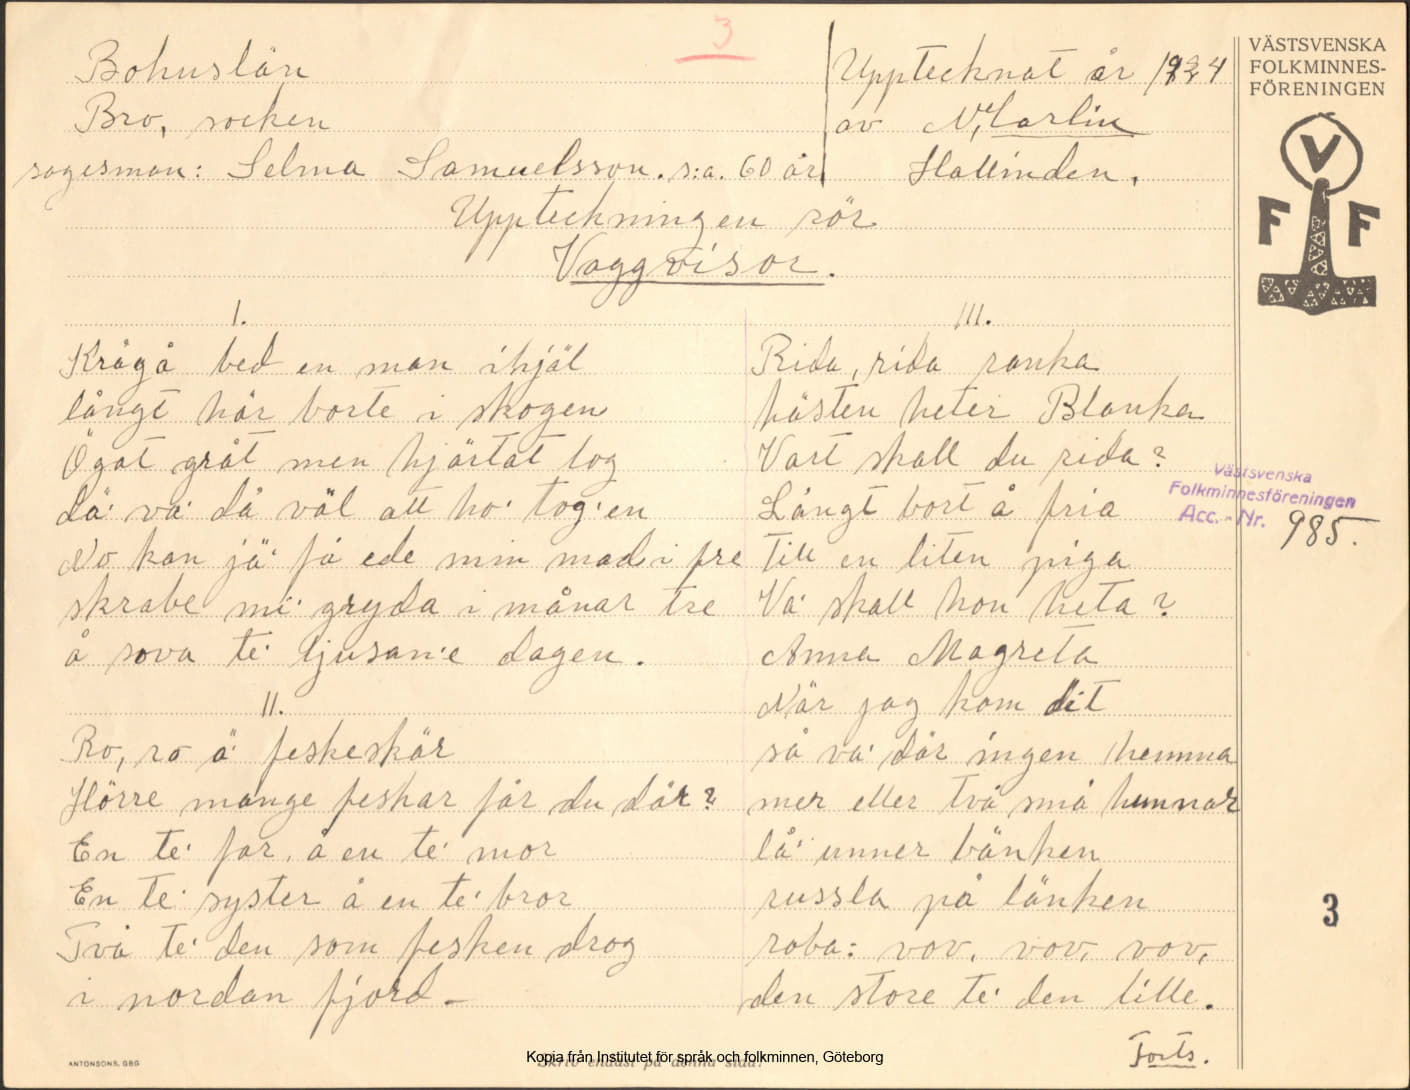 3
Bohuslän
Bro, socken
sagesman: Selma Samuelsson. s:a. 60 år
Upptecknat år 1924
av N, Carlin
Hallinden.
Uppteckningen rör
Vaggvisor.
I.
Krågå bed en man ihjäl
långt här borte i skogen
Ögat gråt men hjärtat log
dä' va' då väl att ho' tog'en
No kan jä' få ede min mad i fre
skrabe mi' gryda i månar tre
å sova te' ljusan'e dagen.
II.
Ro, ro ä' feskeskär
Hörre mange feskar får du där?
En te' far, å en te' mor
En te' syster å en te' bror
Två te' den som fesken drog
i nordan fjord –
III.
Rida, rida ranka
hästen heter Blanka
Vart skall du rida?
Långt bort å fria
Till en liten piga
Va' skall hon heta?
Anna Magreta
När jag kom dit
så va' där ingen hemma
mer eller två små hunnar
lå' unner bänken
russla på länken
roba: vov, vov, vov,
den store te' den lille.
Forts.
VÄSTSVENSKA
FOLKMINNES-
FÖRENINGEN
V
F F
Västsvenska
Folkminnesföreningen
Acc. - Nr. 985.
3
ANTONSONS, GBG
Skriv endast på denna sida!
Kopia från Institutet för språk och folkminnen, Göteborg